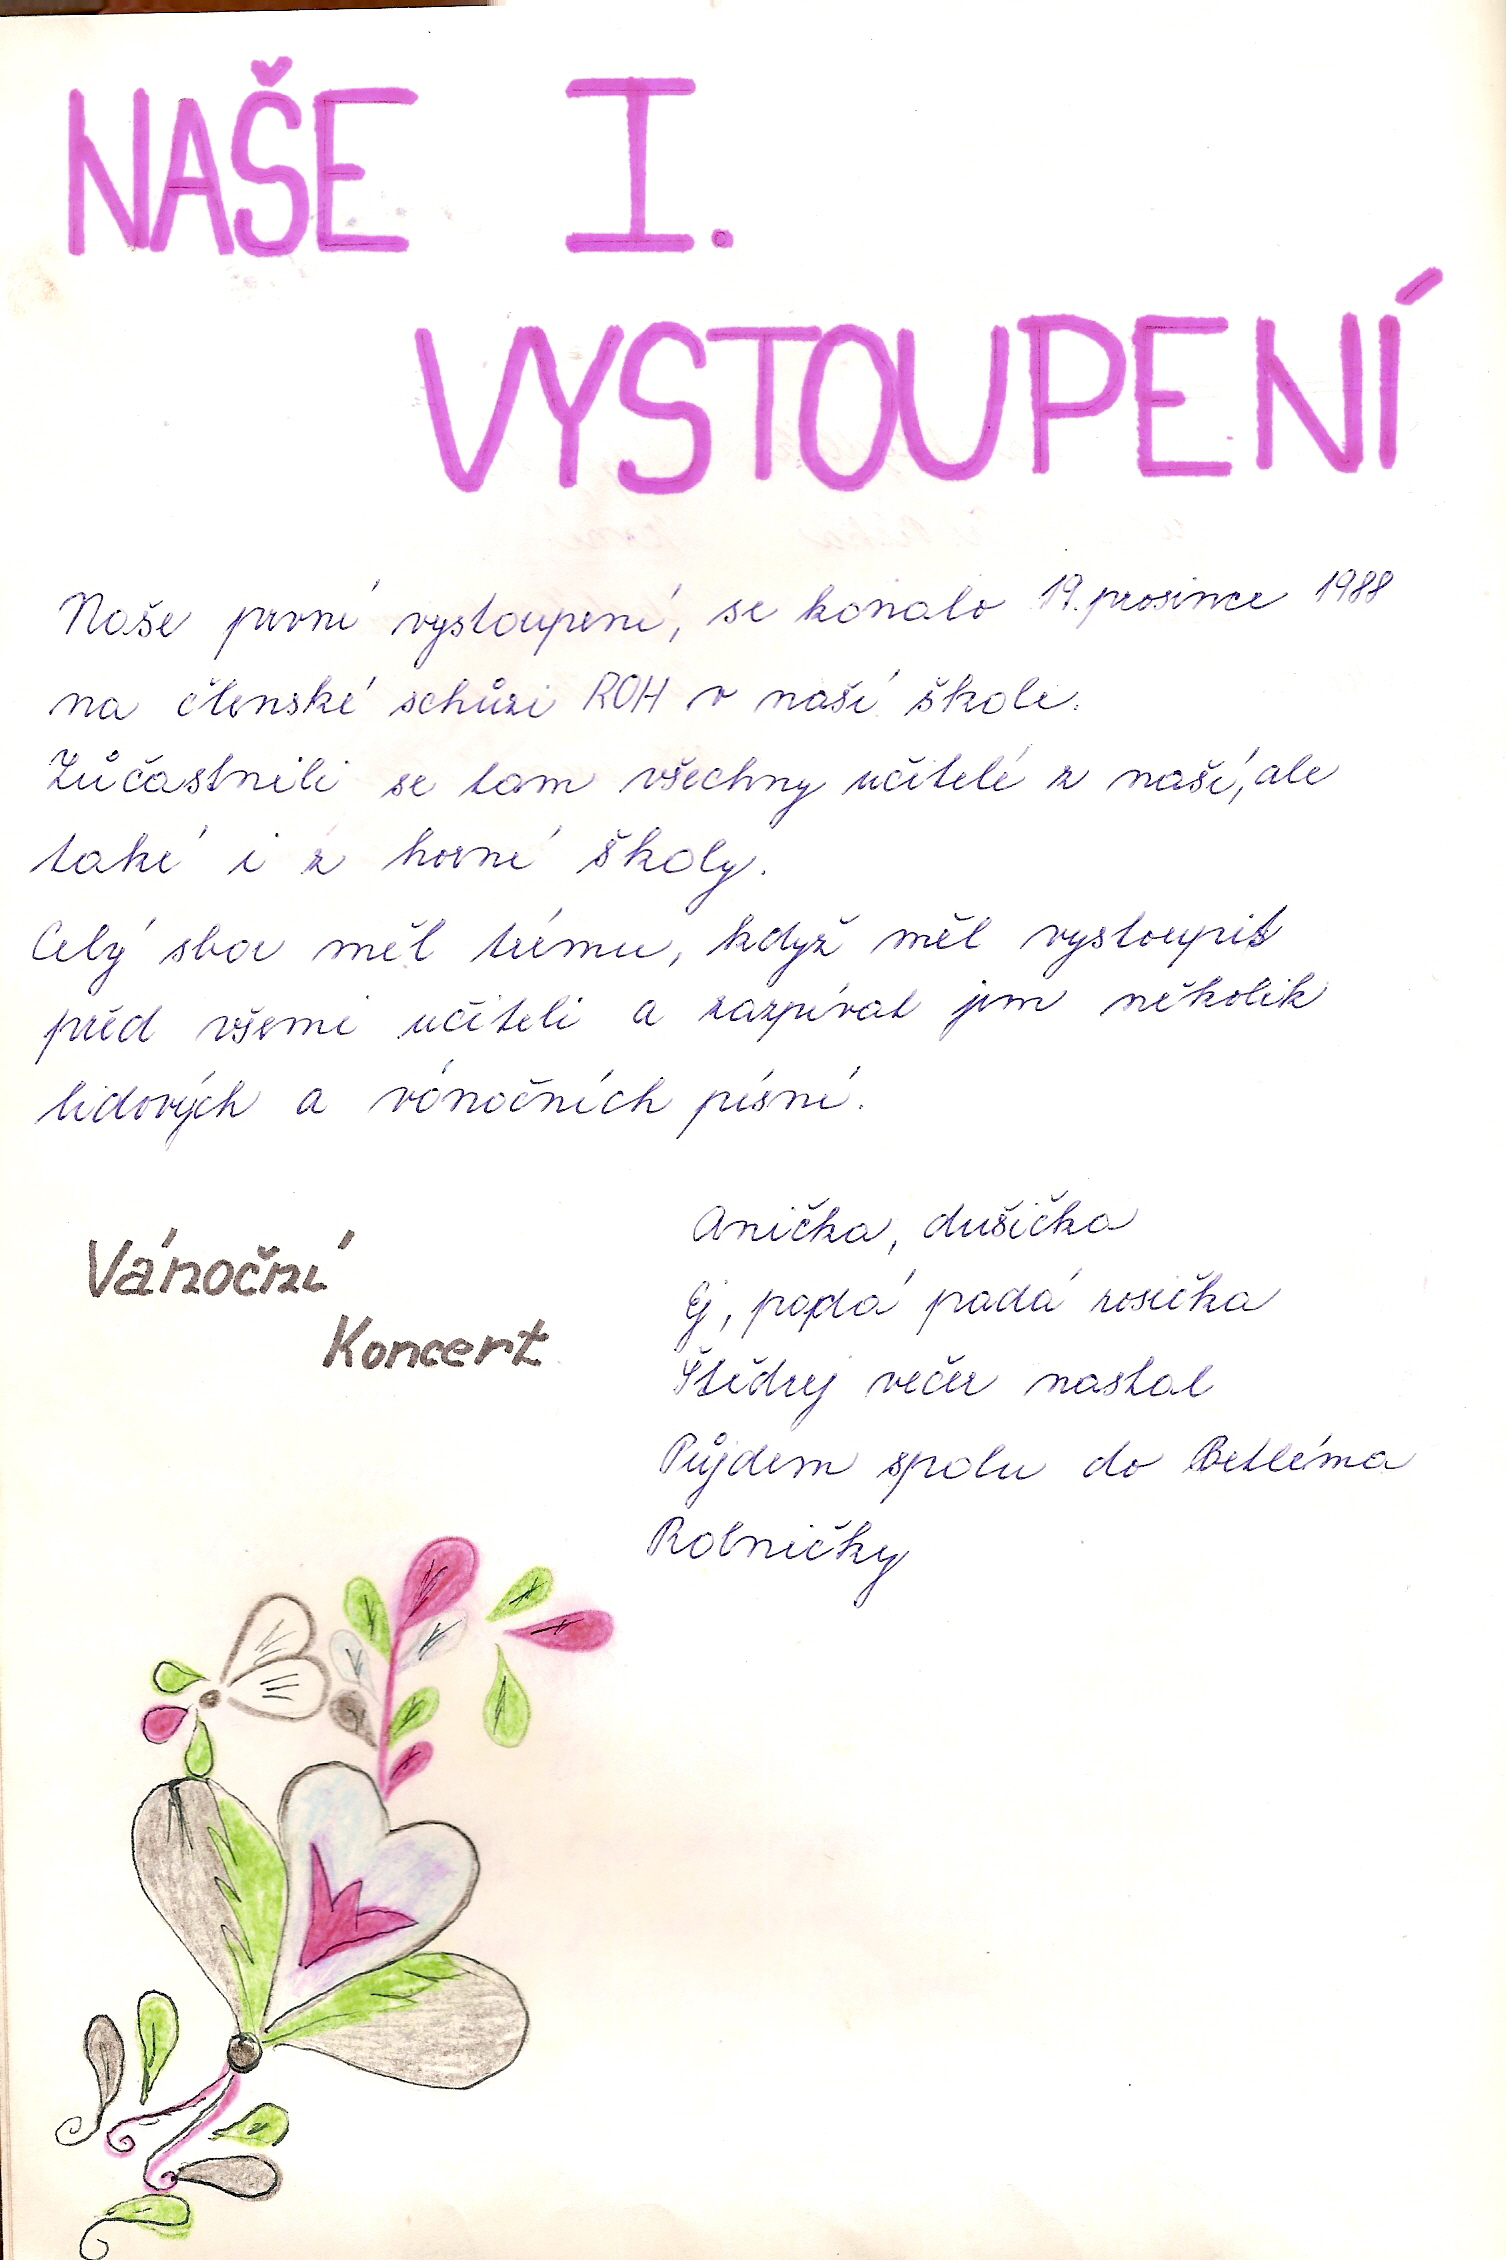 NAŠE I.
VYSTOUPENÍ
Naše první vystoupení, se konalo 19. prosince 1988
na členské schůzi ROH v naší škole.
Zůčastnili se tam všechny učitelé z naší, ale
také i z horní školy.
Celý sbor měl trému, když měl vystoupit
před všemi učiteli a zazpívat jim několik
lidových a vánočních písní.
Vánoční
Koncert
Anička, dušička
Ej, padá padá rosička
Štědrej večer nastal
Půjdem spolu do Betléma
Rolničky